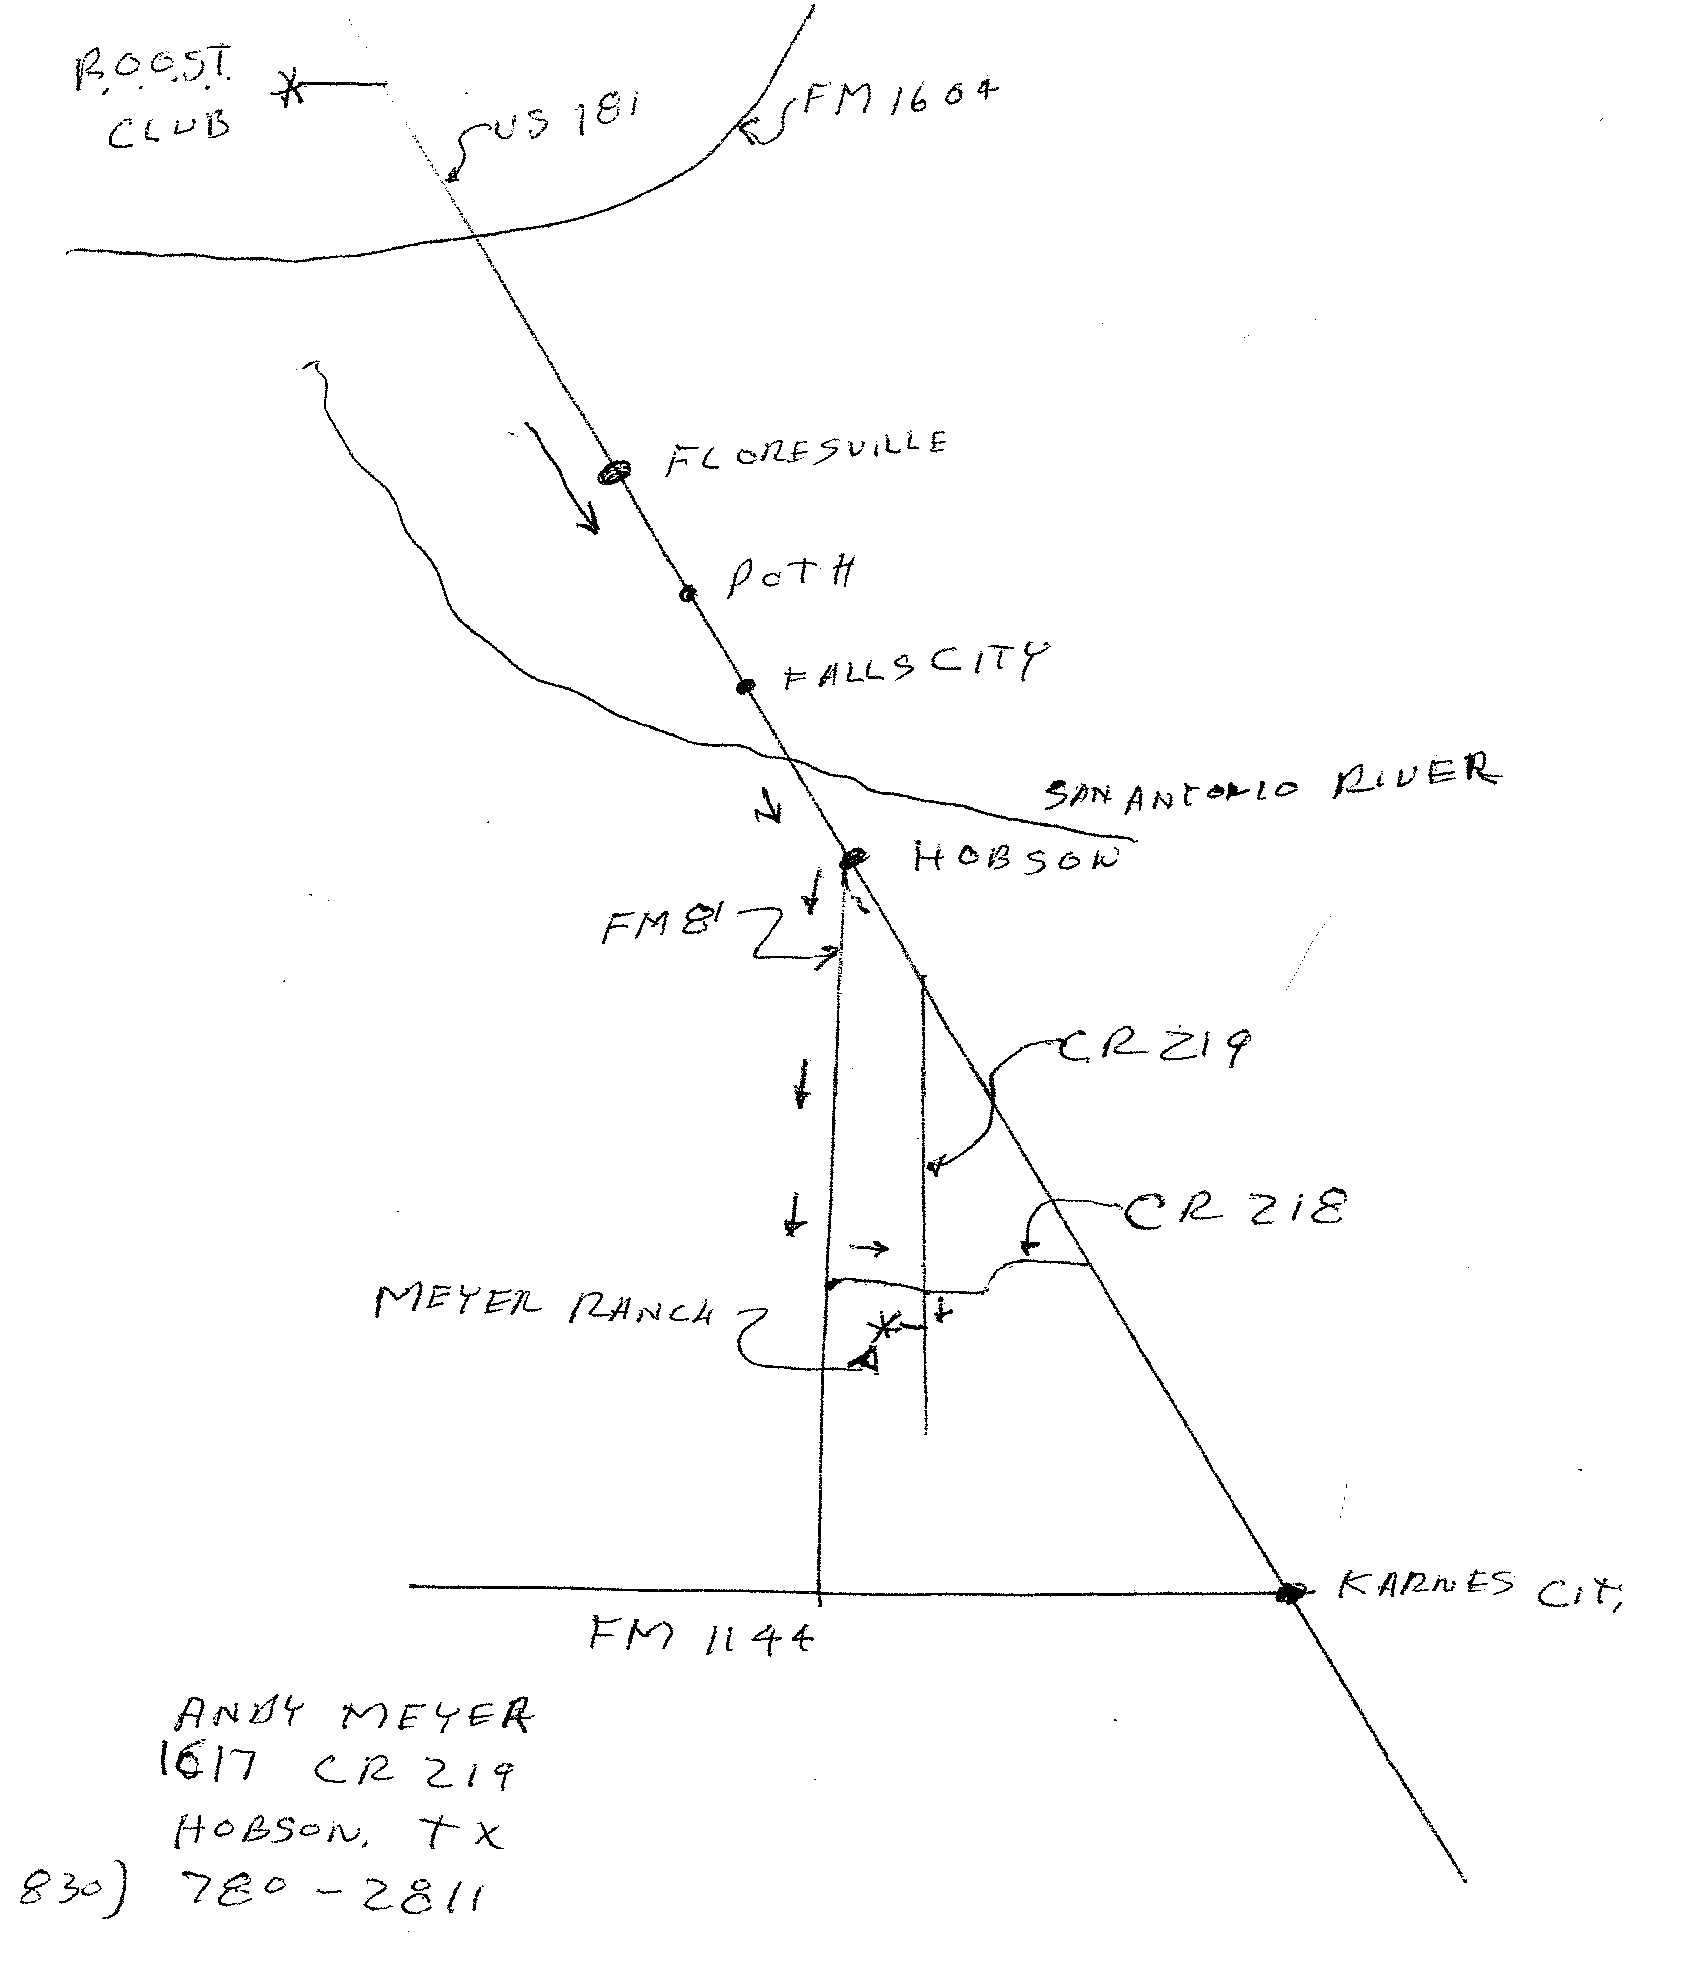 R.O.O.S.T.
CLUB
US 181
FM 1604
FLORESVILLE
POTH
FALLS CITY
SAN ANTONIO RIVER
HOBSON
FM 81
CR 219
CR 218
MEYER RANCH
KARNES CITY
FM 1144
ANDY MEYER
1617 CR 219
HOBSON, TX
830) 780-2811